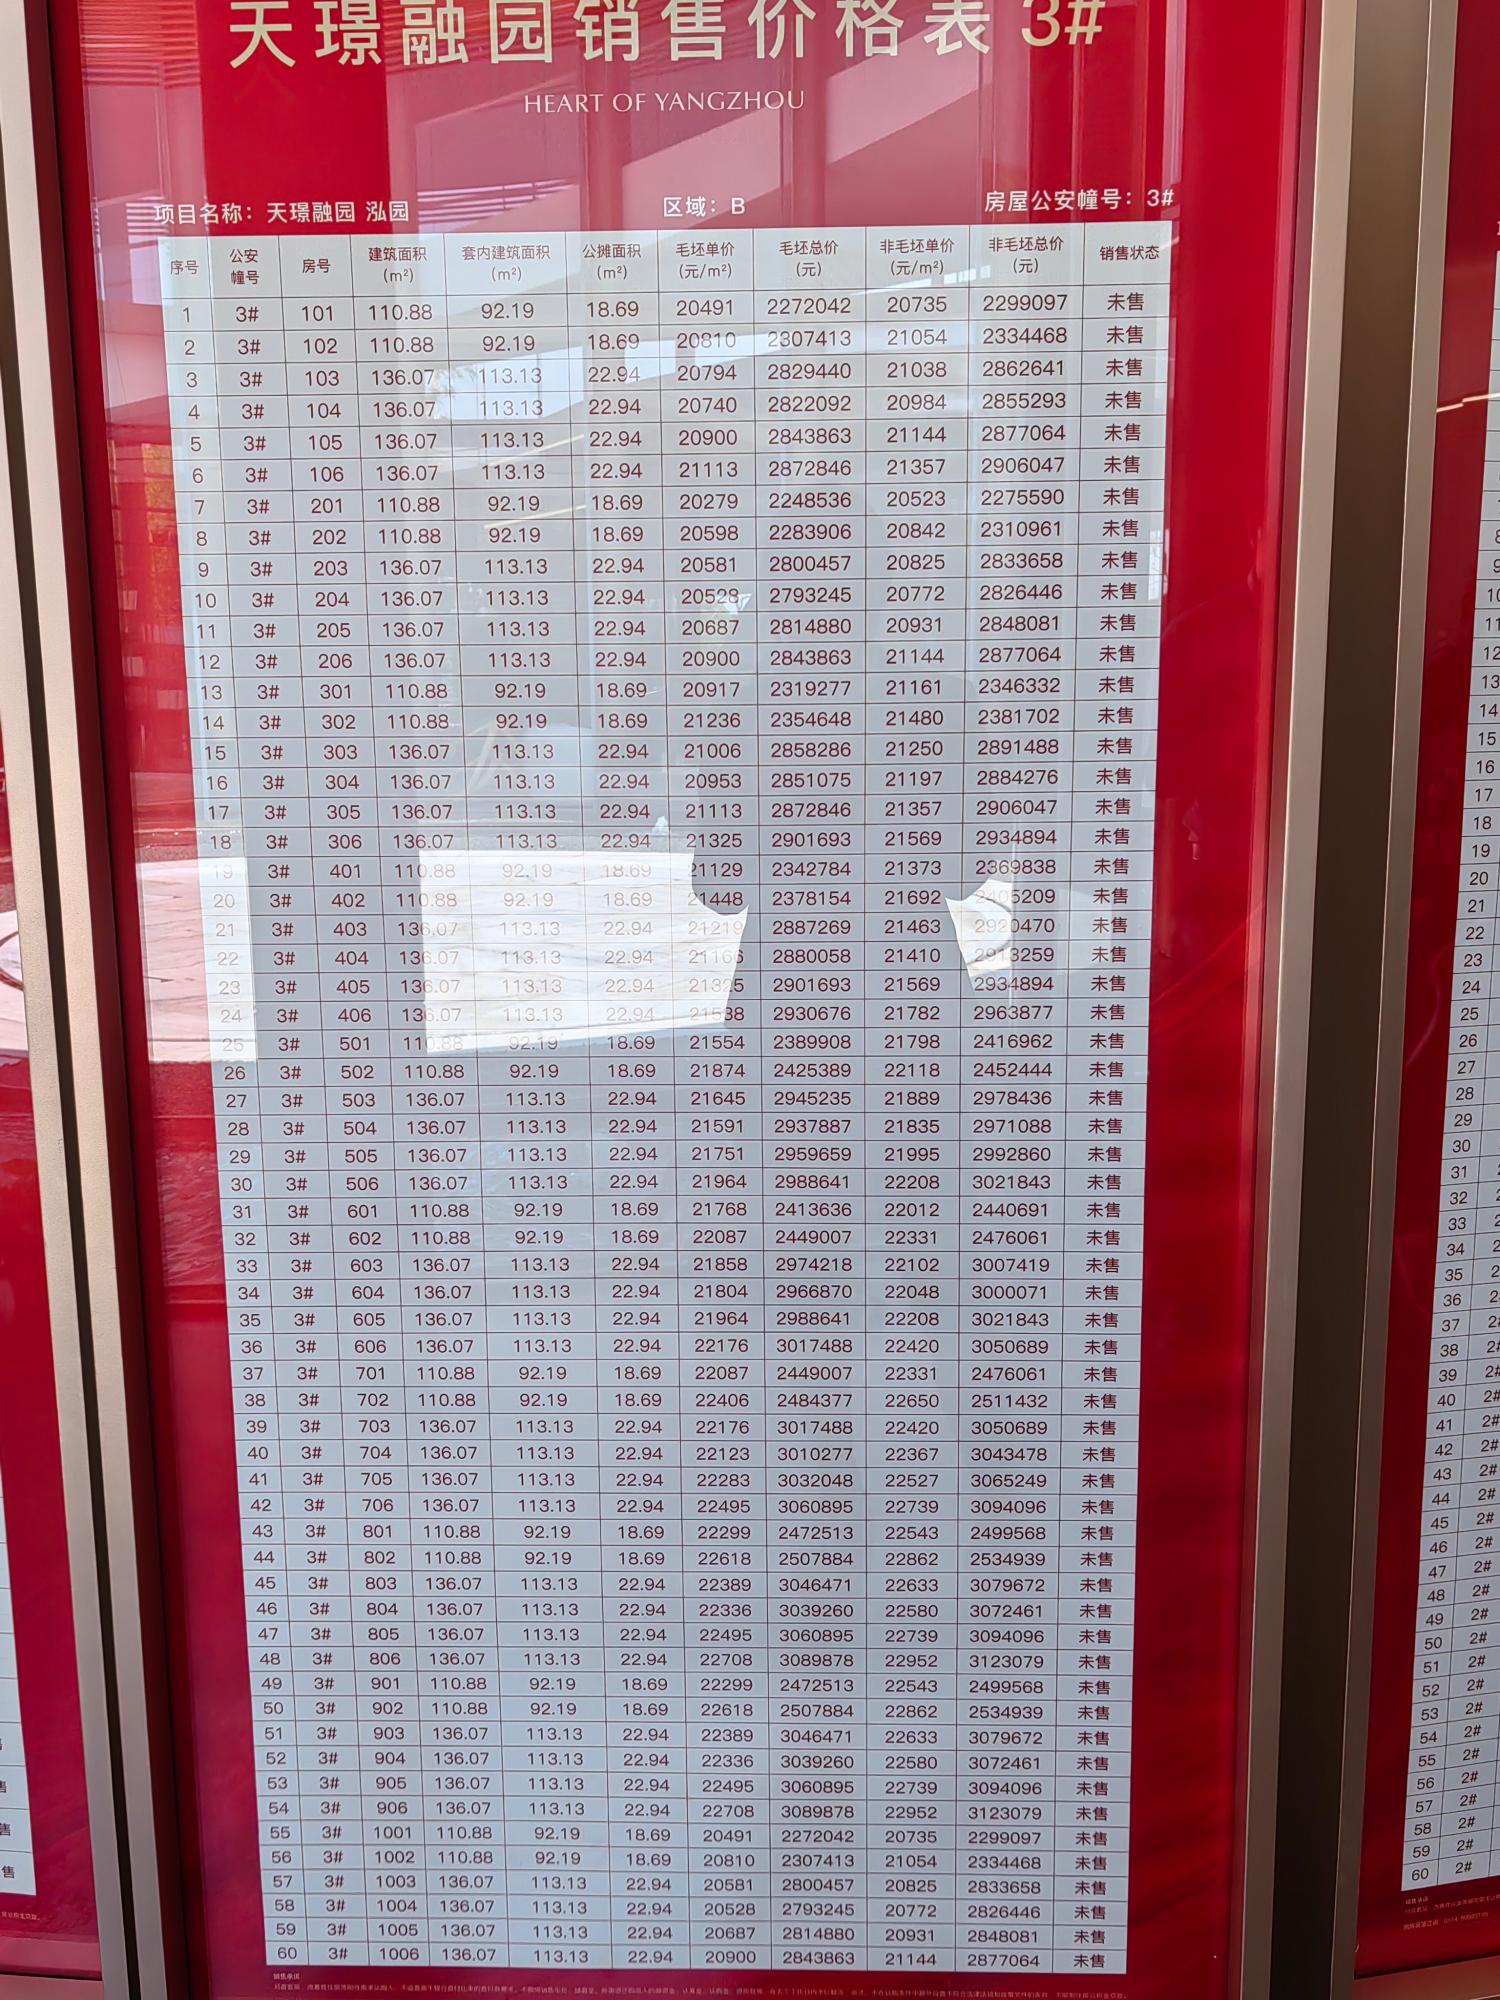 天璟融园销售价格表 3#
HEART OF YANGZHOU
项目名称：天璟融园 泓园 区域：B 房屋公安幢号：3#
序号 公安幢号 房号 建筑面积(m²) 套内建筑面积(m²) 公摊面积(m²) 毛坯单价(元/m²) 毛坯总价(元) 非毛坯单价(元/m²) 非毛坯总价(元) 销售状态
1 3# 101 110.88 92.19 18.69 20491 2272042 20735 2299097 未售
2 3# 102 110.88 92.19 18.69 20810 2307413 21054 2334468 未售
3 3# 103 136.07 113.13 22.94 20794 2829440 21038 2862641 未售
4 3# 104 136.07 113.13 22.94 20740 2822092 20984 2855293 未售
5 3# 105 136.07 113.13 22.94 20900 2843863 21144 2877064 未售
6 3# 106 136.07 113.13 22.94 21113 2872846 21357 2906047 未售
7 3# 201 110.88 92.19 18.69 20279 2248536 20523 2275590 未售
8 3# 202 110.88 92.19 18.69 20598 2283906 20842 2310961 未售
9 3# 203 136.07 113.13 22.94 20581 2800457 20825 2833658 未售
10 3# 204 136.07 113.13 22.94 20528 2793245 20772 2826446 未售
11 3# 205 136.07 113.13 22.94 20687 2814880 20931 2848081 未售
12 3# 206 136.07 113.13 22.94 20900 2843863 21144 2877064 未售
13 3# 301 110.88 92.19 18.69 20917 2319277 21161 2346332 未售
14 3# 302 110.88 92.19 18.69 21236 2354648 21480 2381702 未售
15 3# 303 136.07 113.13 22.94 21006 2858286 21250 2891488 未售
16 3# 304 136.07 113.13 22.94 20953 2851075 21197 2884276 未售
17 3# 305 136.07 113.13 22.94 21113 2872846 21357 2906047 未售
18 3# 306 136.07 113.13 22.94 21325 2901693 21569 2934894 未售
19 3# 401 110.88 92.19 18.69 21129 2342784 21373 2369838 未售
20 3# 402 110.88 92.19 18.69 21448 2378154 21692 2405209 未售
21 3# 403 136.07 113.13 22.94 21219 2887269 21463 2920470 未售
22 3# 404 136.07 113.13 22.94 21166 2880058 21410 2913259 未售
23 3# 405 136.07 113.13 22.94 21325 2901693 21569 2934894 未售
24 3# 406 136.07 113.13 22.94 21538 2930676 21782 2963877 未售
25 3# 501 110.88 92.19 18.69 21554 2389908 21798 2416962 未售
26 3# 502 110.88 92.19 18.69 21874 2425389 22118 2452444 未售
27 3# 503 136.07 113.13 22.94 21645 2945235 21889 2978436 未售
28 3# 504 136.07 113.13 22.94 21591 2937887 21835 2971088 未售
29 3# 505 136.07 113.13 22.94 21751 2959659 21995 2992860 未售
30 3# 506 136.07 113.13 22.94 21964 2988641 22208 3021843 未售
31 3# 601 110.88 92.19 18.69 21768 2413636 22012 2440691 未售
32 3# 602 110.88 92.19 18.69 22087 2449007 22331 2476061 未售
33 3# 603 136.07 113.13 22.94 21858 2974218 22102 3007419 未售
34 3# 604 136.07 113.13 22.94 21804 2966870 22048 3000071 未售
35 3# 605 136.07 113.13 22.94 21964 2988641 22208 3021843 未售
36 3# 606 136.07 113.13 22.94 22176 3017488 22420 3050689 未售
37 3# 701 110.88 92.19 18.69 22087 2449007 22331 2476061 未售
38 3# 702 110.88 92.19 18.69 22406 2484377 22650 2511432 未售
39 3# 703 136.07 113.13 22.94 22176 3017488 22420 3050689 未售
40 3# 704 136.07 113.13 22.94 22123 3010277 22367 3043478 未售
41 3# 705 136.07 113.13 22.94 22283 3032048 22527 3065249 未售
42 3# 706 136.07 113.13 22.94 22495 3060895 22739 3094096 未售
43 3# 801 110.88 92.19 18.69 22299 2472513 22543 2499568 未售
44 3# 802 110.88 92.19 18.69 22618 2507884 22862 2534939 未售
45 3# 803 136.07 113.13 22.94 22389 3046471 22633 3079672 未售
46 3# 804 136.07 113.13 22.94 22336 3039260 22580 3072461 未售
47 3# 805 136.07 113.13 22.94 22495 3060895 22739 3094096 未售
48 3# 806 136.07 113.13 22.94 22708 3089878 22952 3123079 未售
49 3# 901 110.88 92.19 18.69 22299 2472513 22543 2499568 未售
50 3# 902 110.88 92.19 18.69 22618 2507884 22862 2534939 未售
51 3# 903 136.07 113.13 22.94 22389 3046471 22633 3079672 未售
52 3# 904 136.07 113.13 22.94 22336 3039260 22580 3072461 未售
53 3# 905 136.07 113.13 22.94 22495 3060895 22739 3094096 未售
54 3# 906 136.07 113.13 22.94 22708 3089878 22952 3123079 未售
55 3# 1001 110.88 92.19 18.69 20491 2272042 20735 2299097 未售
56 3# 1002 110.88 92.19 18.69 20810 2307413 21054 2334468 未售
57 3# 1003 136.07 113.13 22.94 20581 2800457 20825 2833658 未售
58 3# 1004 136.07 113.13 22.94 20528 2793245 20772 2826446 未售
59 3# 1005 136.07 113.13 22.94 20687 2814880 20931 2848081 未售
60 3# 1006 136.07 113.13 22.94 20900 2843863 21144 2877064 未售
销售承诺